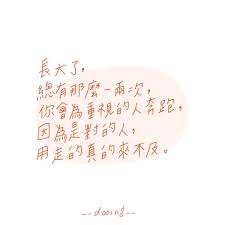 長大了，
總有那麼一兩次，
你會為重視的人奔跑，
因為是對的人，
用走的真的來不及。